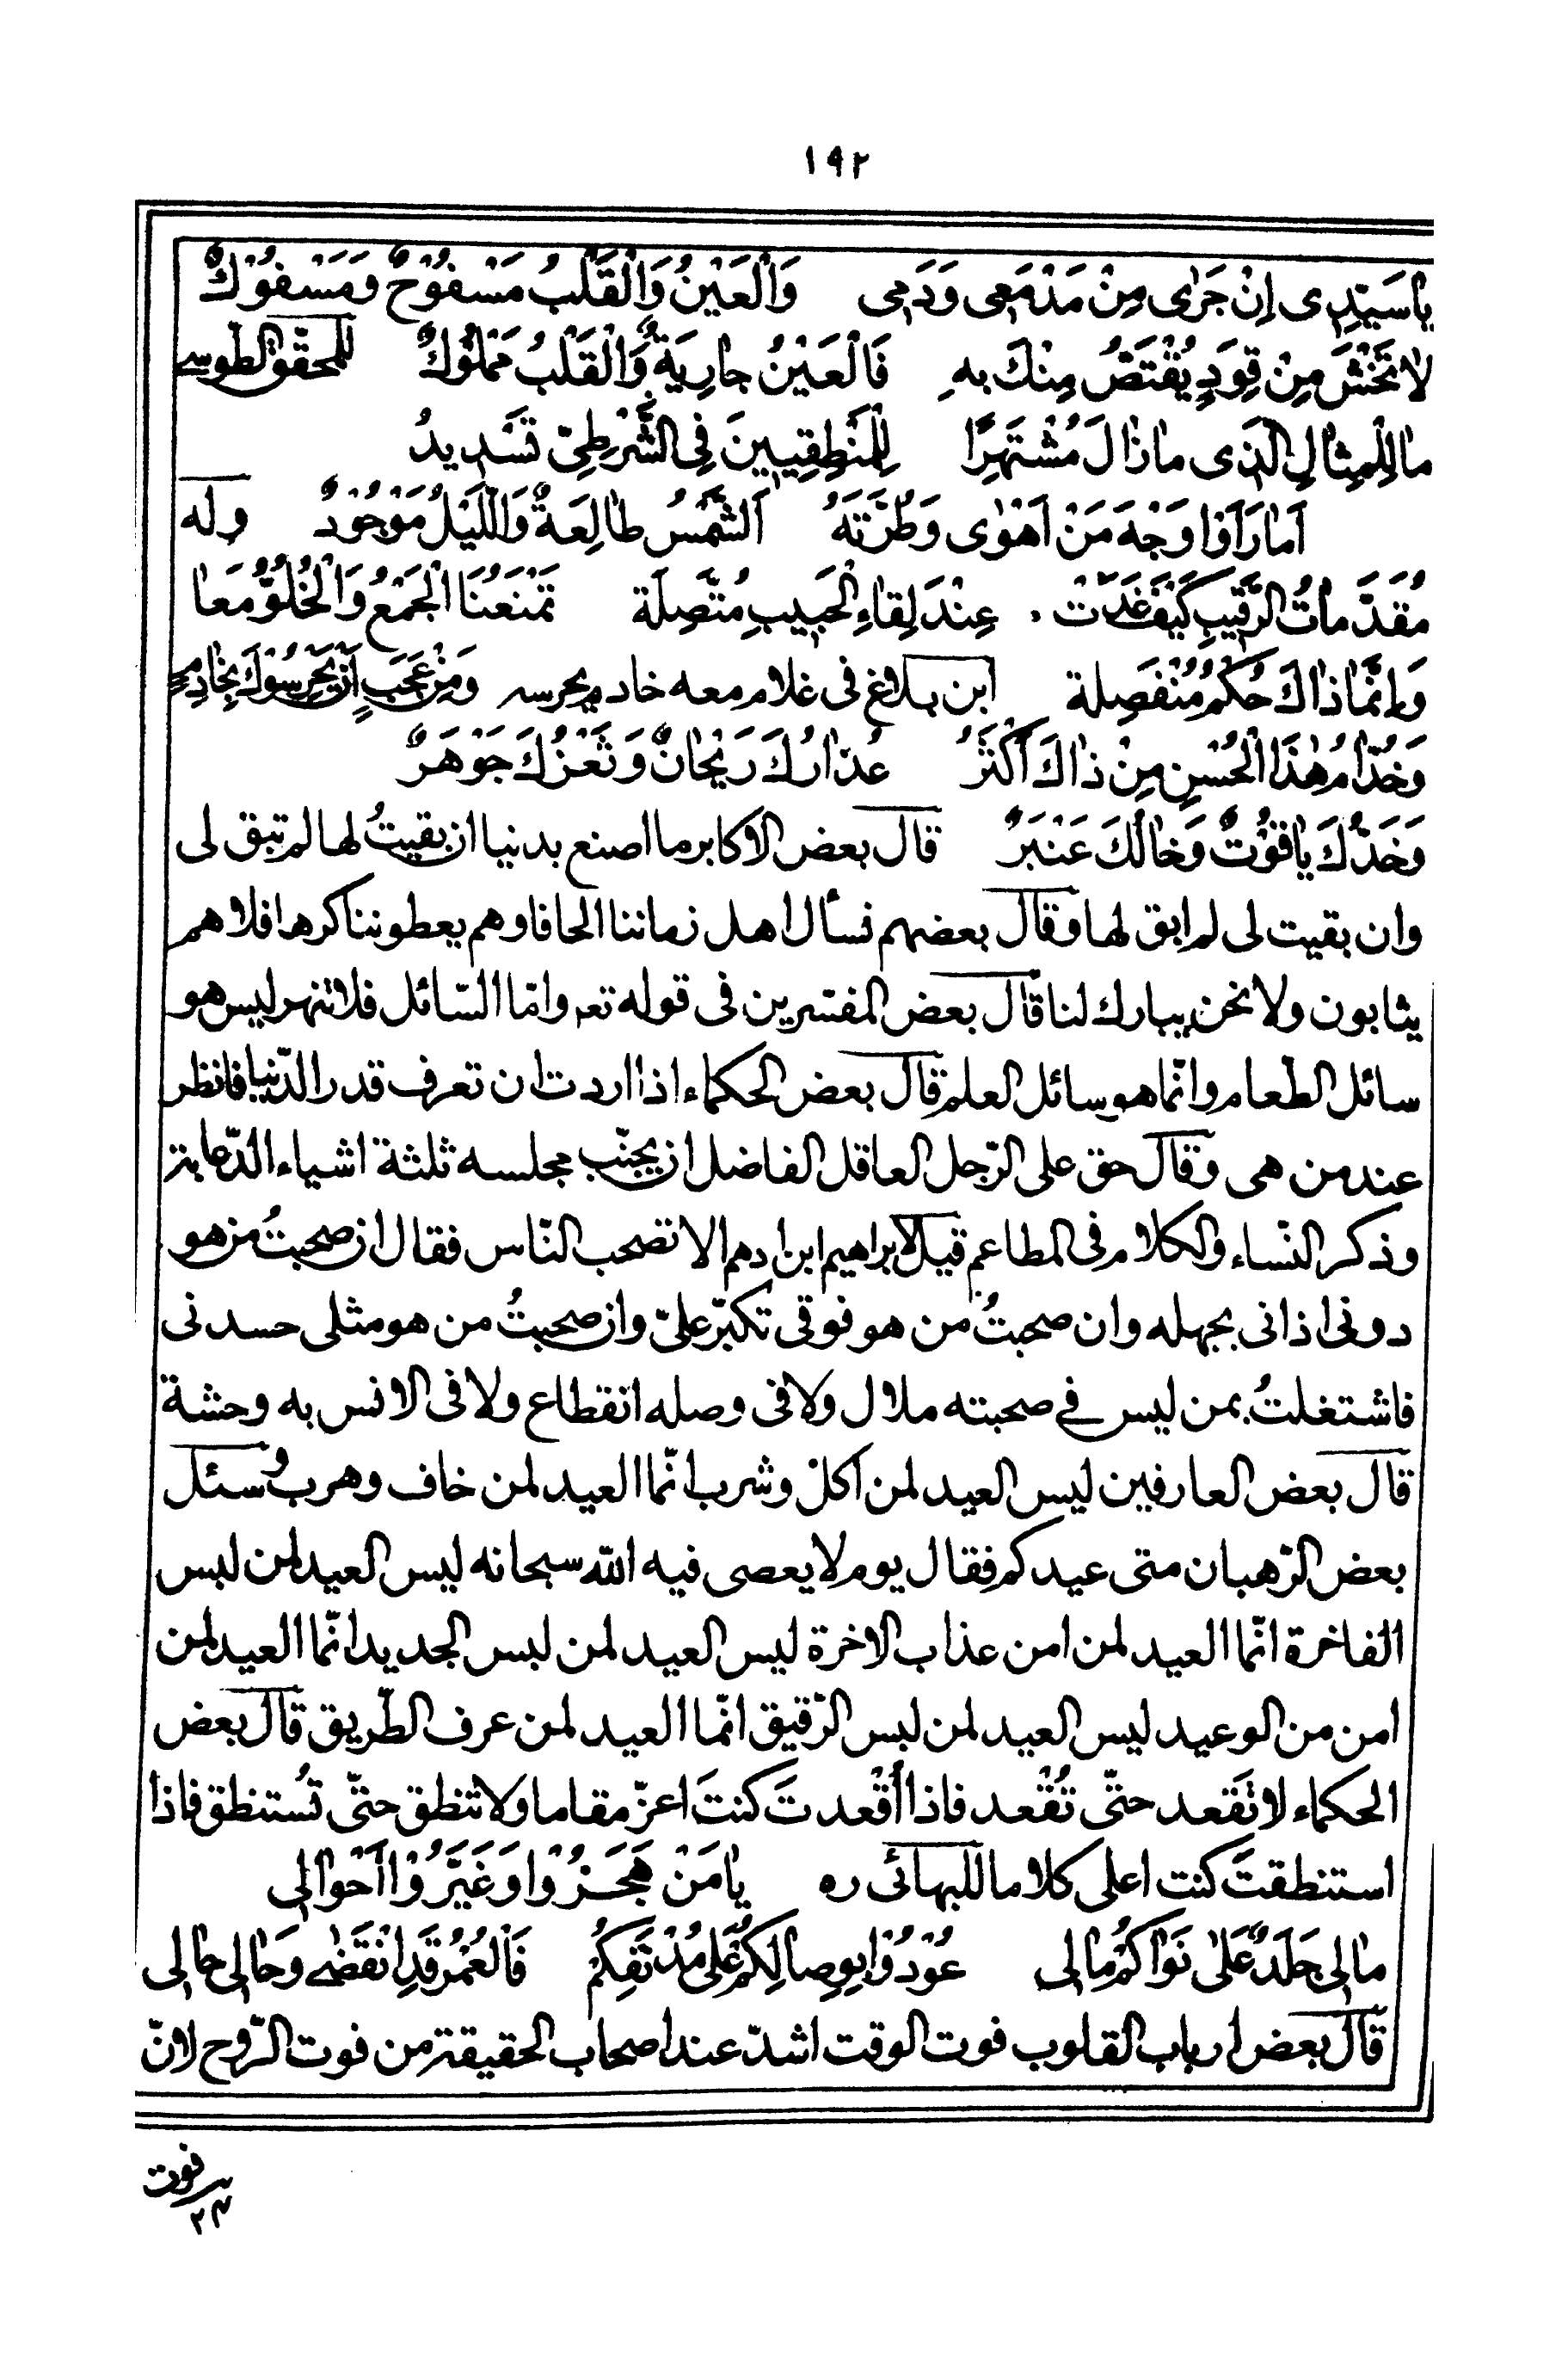 ١٩٢
يٰاسَيِّدِى اِنْ جَرٰى مِنْ مَدْمَعِى وَدَمِى وَالْعَيْنُ وَالْقَلْبُ مَسْفُوْحٌ وَمَسْفُوْكٌ
لٰاتَخْشَ مِنْ قِوَدٍ يُقْتَصُّ مِنْكَ بِهِ فَالْعَيْنُ جٰارِيَةٌ وَالْقَلْبُ مَمْلُوْكٌ للمحقّق الطوسے
مٰالِلْمِثٰالِ الَّذِى مٰازٰالَ مُشْتَهِرًا لِلْمَنْطِقِيِيِنَ فِى الشَّرْطِىِّ تَسْدِيدُ
اَمٰارَاَوْا وَجْهَ مَنْ اَهْوٰى وَطُرَّتَهُ اَلشَّمْسُ طٰالِعَةٌ وَاللَّيْلُ مَوْجُوْدٌ وله
مُقَدَّمٰاتُ الرَّقٖيبِ كَيْفَ غَدَتْ عِنْدَ لِقٰاءِ الْحَبٖيبِ مُتَّصِلَة تَمْنَعُنَا الْجَمْعُ وَالْخُلُوُّ مَعٰا
وَاِنَّمٰا ذٰاكَ حُكْمُ مُنْفَصِلَة ابن بلاغ فى غلام معه خادم يحرسه وَمِنْ عَجَبٍ اَنْ يَحْرِسُوْكَ بِخٰادِمٍ
وَخُدّٰامُ هٰذَا الْحُسْنِ مِنْ ذٰاكَ اَكْثَرُ عُذٰارُكَ رَيْحٰانٌ وَثَغْرُكَ جَوْهَرٌ
وَخَدُّكَ يٰاقُوْتٌ وَخٰالُكَ عَنْبَرٌ قال بعض الاكابر ما اصنع بدنيا ان بقيتُ لها لم تبق لى
وان بقيت لى لم ابق لها وقال بعضهم نسأل اهل زماننا الحافا وهم يعطوننا كرها فلا هم
يثابون ولا نحن يبارك لنا قال بعض المفسّرين فى قوله تعه وامّا السّائل فلا تنهر ليس هو
سائل الطعام وانّما هو سائل العلم قال بعض الحكماء اذا اردت ان تعرف قدر الدّنيا فانظر
عند من هى وقال حق على الرّجل العاقل الفاضل ان يجنّب مجلسه ثلثة اشياء الدّعابة
وذكر النّساء والكلام فى المطاعم قيل لابراهيم ابن ادهم الا تصحب النّاس فقال ان صحبتُ من هو
دونى اذانى بجهله وان صحبتُ من هو فوقى تكبّر علىّ وان صحبتُ من هو مثلى حسدنى
فاشتغلتُ بمن ليس فے صحبته ملال ولا فى وصله انقطاع ولا فى الانس به وحشة
قال بعض العارفين ليس العيد لمن اكل وشرب انّما العيد لمن خاف وهرب وسئل
بعض الرّهبان متى عيدكم فقال يوم لا يعصى فيه الله سبحانه ليس العيد لمن لبس
الفاخرة انّما العيد لمن امن عذاب الاخرة ليس العيد لمن لبس الجديد انّما العيد لمن
امن من الوعيد ليس العيد لمن لبس الرّقيق انّما العيد لمن عرف الطّريق قال بعض
الحكماء لا تَقعد حتّى تُقْعد فاذا اُقْعدتَ كنتَ اعزّ مقاما ولا تنطق حتّى تُستنطق فاذا
استنطقتَ كنت اعلى كلاما للبهائى ره يٰا مَنْ هَجَرُوْا وَغَيَّرُوْا اَحْوٰالى
مٰالى جَلَدٌ عَلٰى نَوٰاكُمْ مٰالى عُوْدُوْا بِوِصٰالِكُمْ عَلٰى مُدْنَفِكُمْ فَالْعُمْرُ قَدِ انْقَضٰے وَحٰالى حٰالى
قال بعض ارباب القلوب فوت الوقت اشدّ عند اصحاب الحقيقة من فوت الرّوح لانّ
فوت